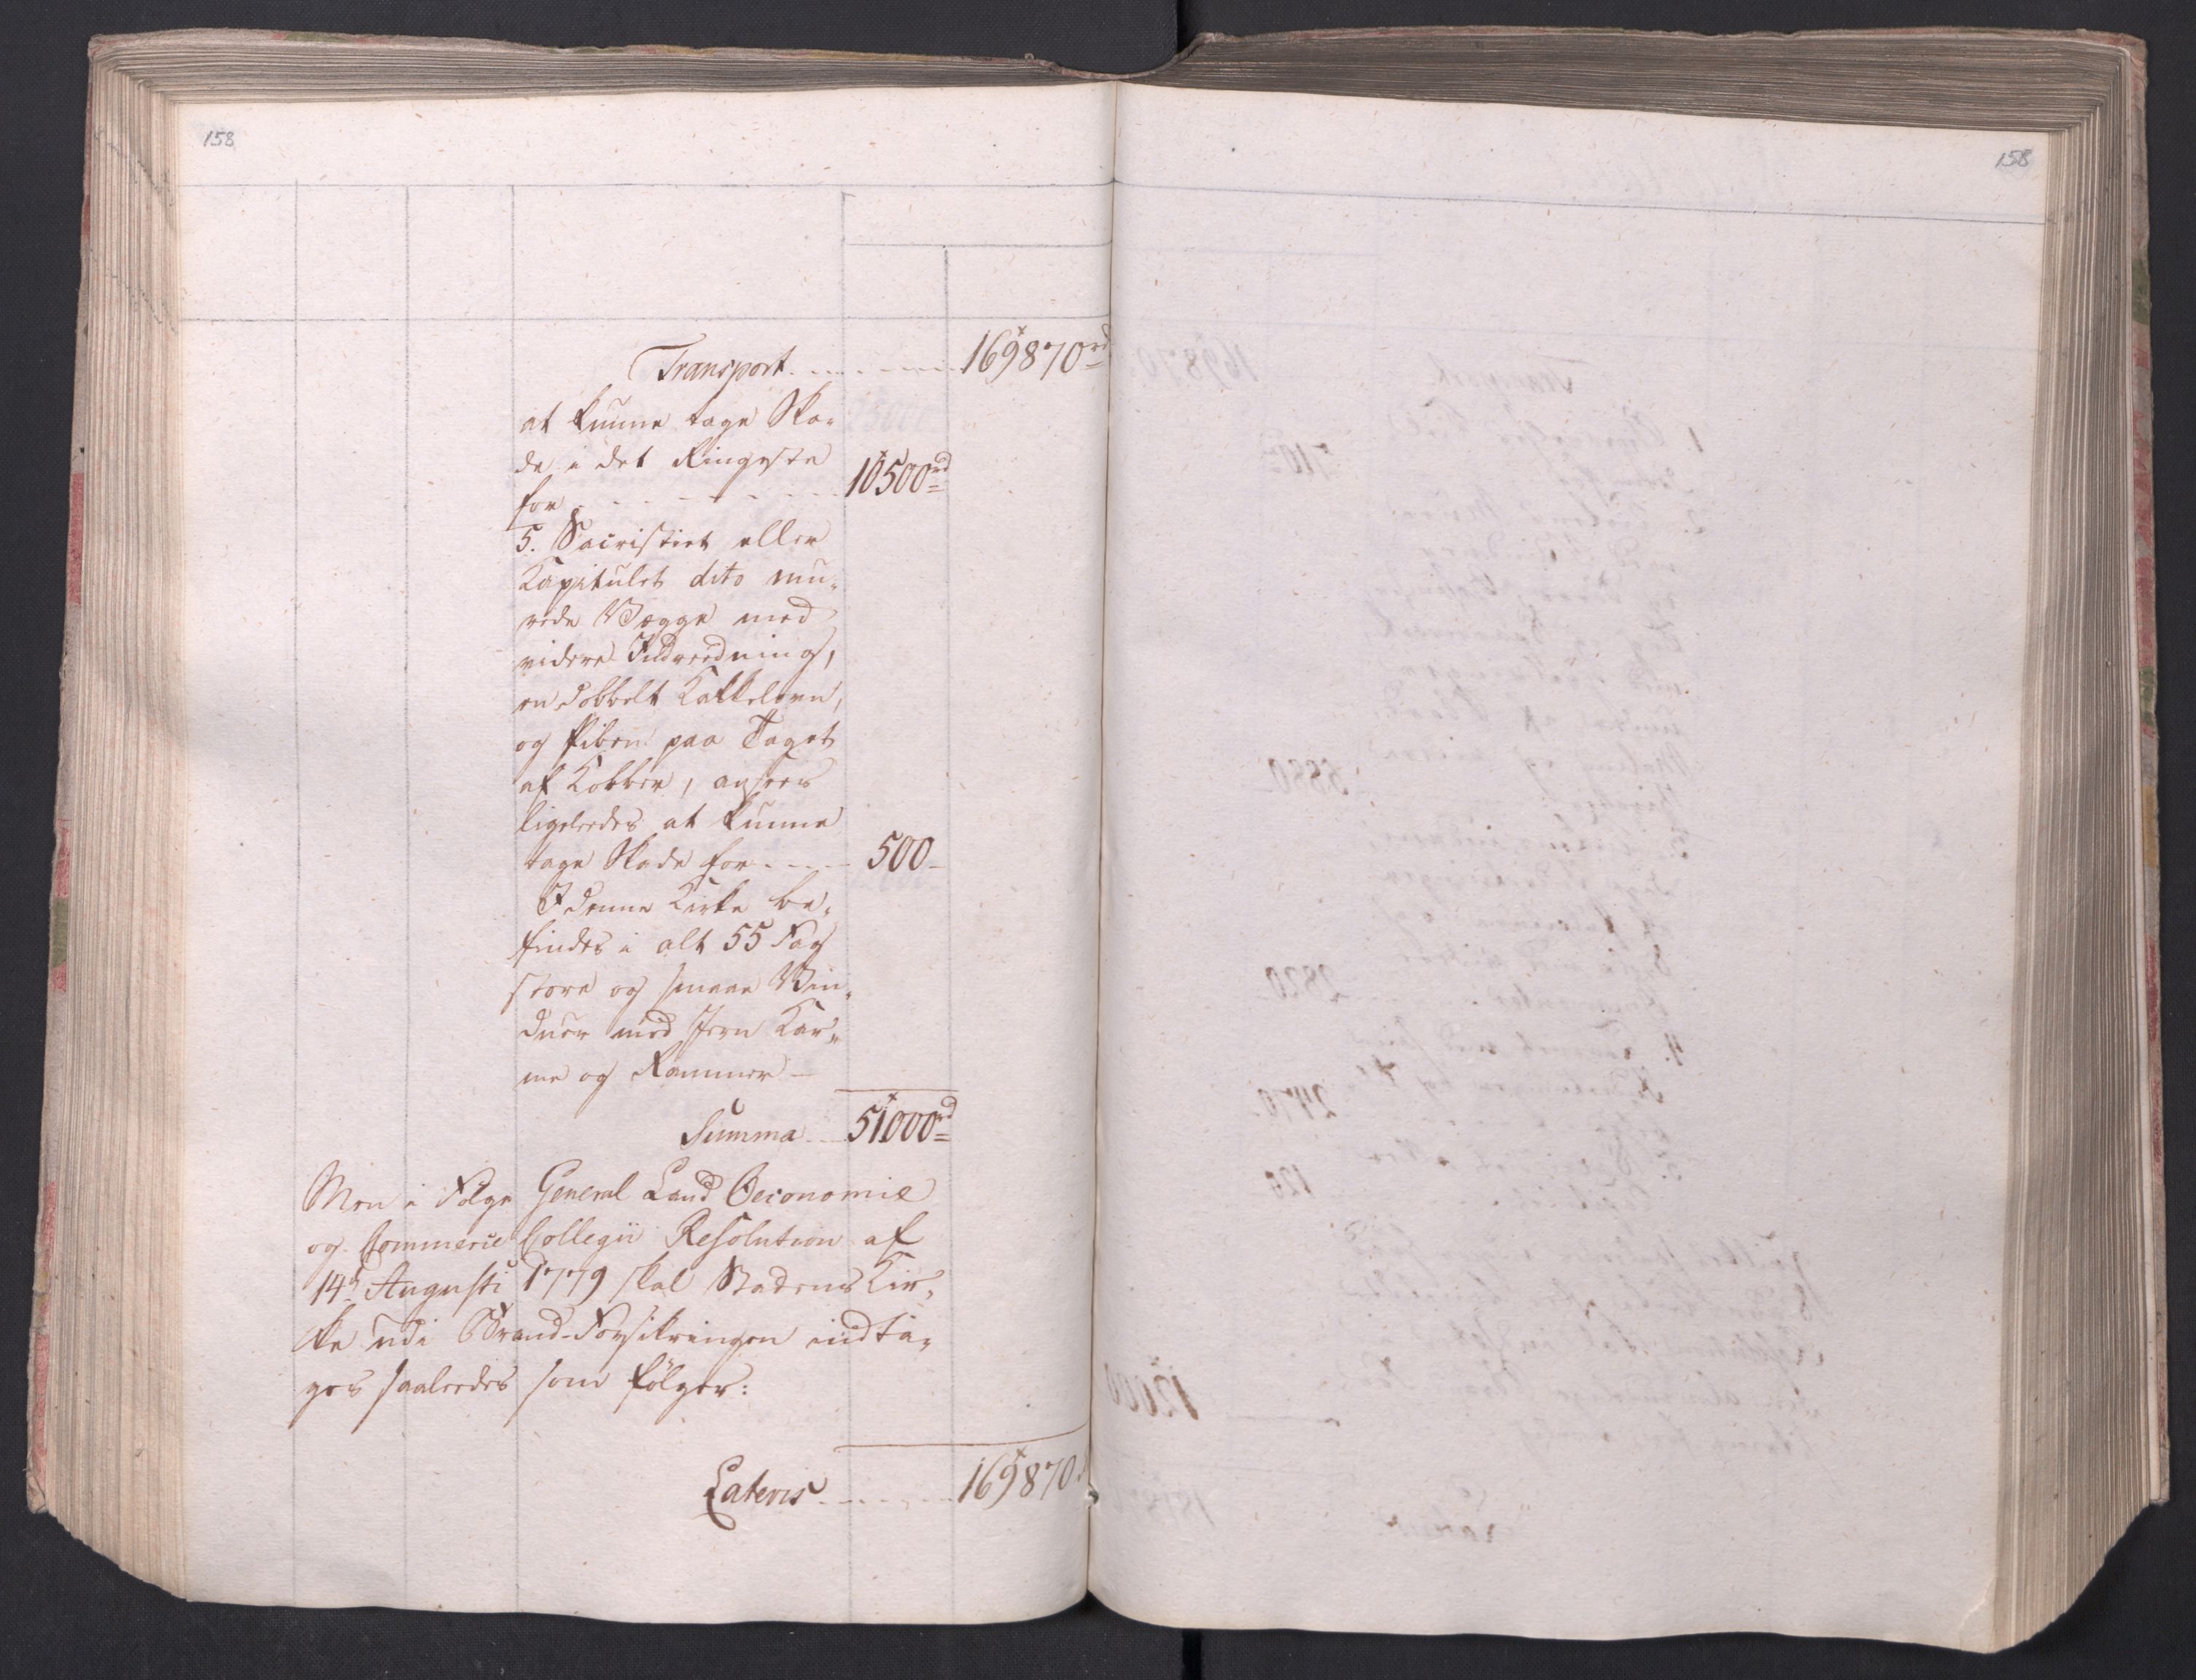 158
158
Transport 169870rd
at kunne tage Ska-
de i det Ringeste
for 10500rd
5. Sacristiet eller
Kapitulet dito mu-
rede Vægge med
videre Indreedning,
en dobbelt Kakkelovn,
og Piben paa Taget
af Kobber, ansees
ligeleedes at kunne
tage Skade for 500
I denne Kirke be-
findes i alt 55 Fag
store og smaae Vin-
duer med Jern Kar-
me og Rammer
Summa 51000rd
Men i Følge General Land Oeconomie
og Commerce Collegii Resolution af
14d Augusti 1779 skal Stadens Kir-
ke udi Brand-Forsikringen indta-
ges saaleedes som følger:
Lateris 169870